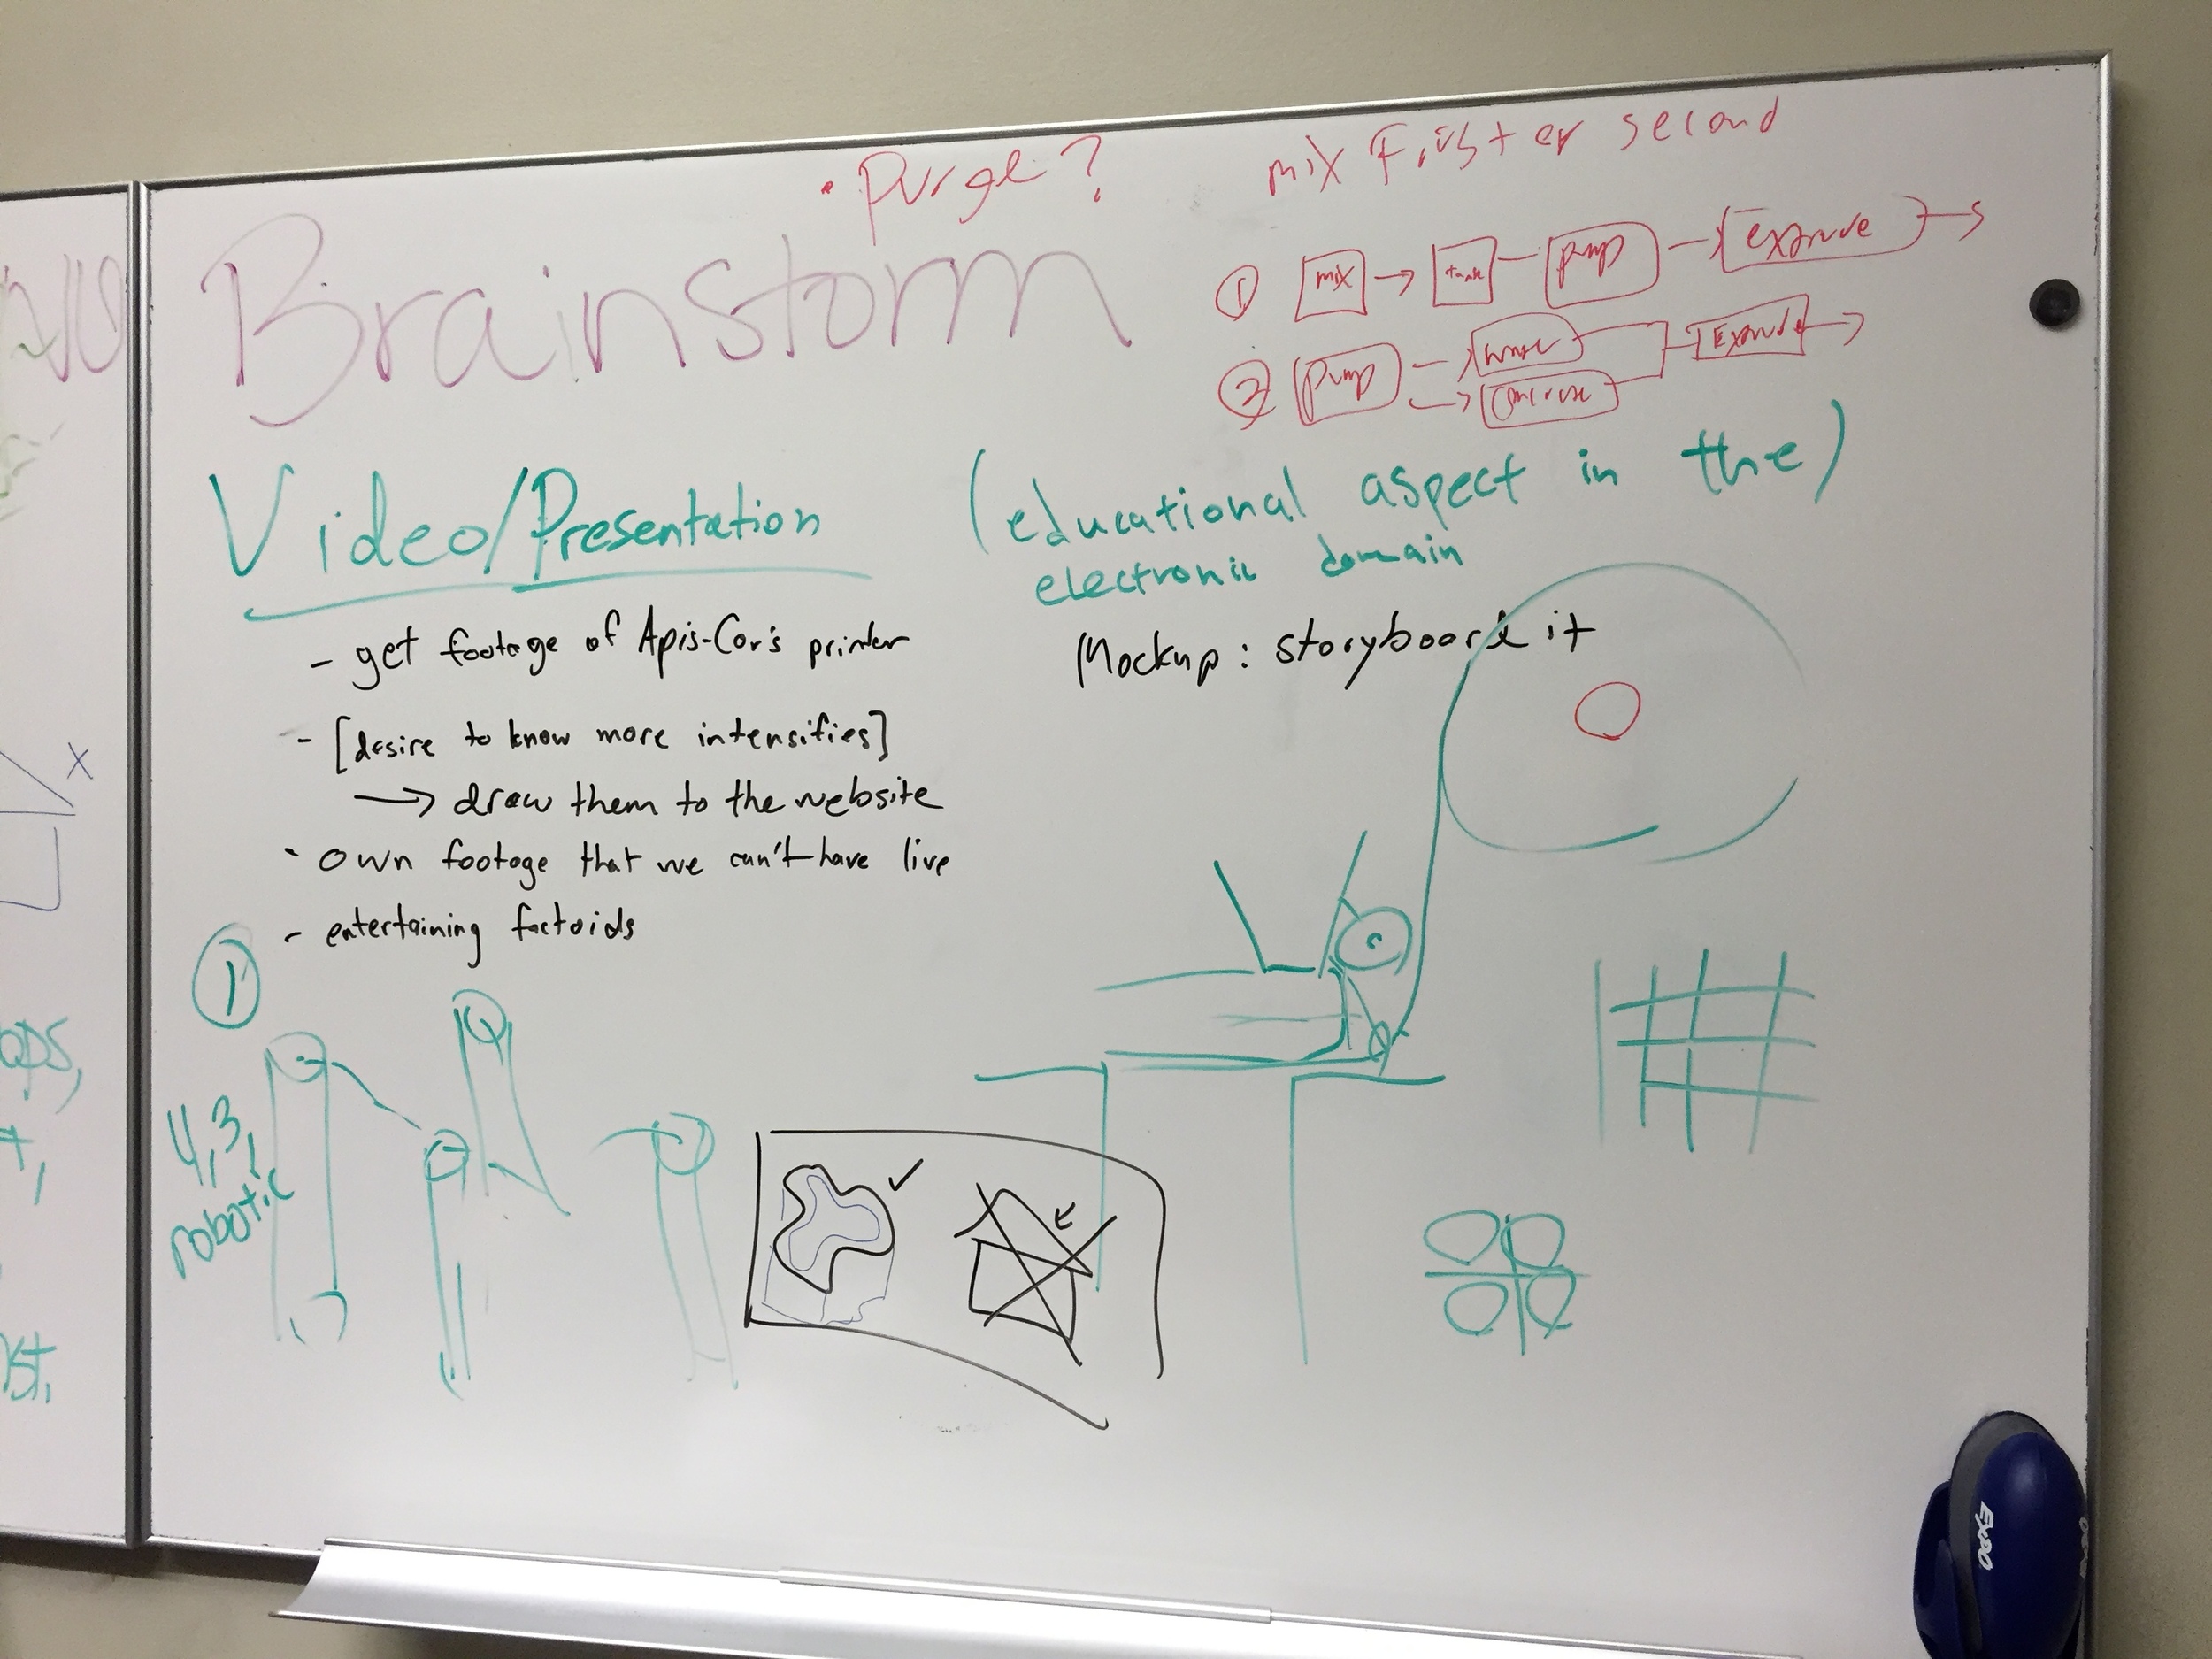 • Purge?
mix First or second
Brainstorm
① mix → tank pump → Extrude →
② pump → water Extrude →
→ concrete
Video/Presentation
(educational aspect in the)
electronic domain
- get footage of Apis-Cor's printer
Mockup: storyboard it
- [desire to know more intensifies]
→ draw them to the website
- own footage that we can't have live
- entertaining factoids
①
4,3,
robotic
x
ops,
st.
EXPO